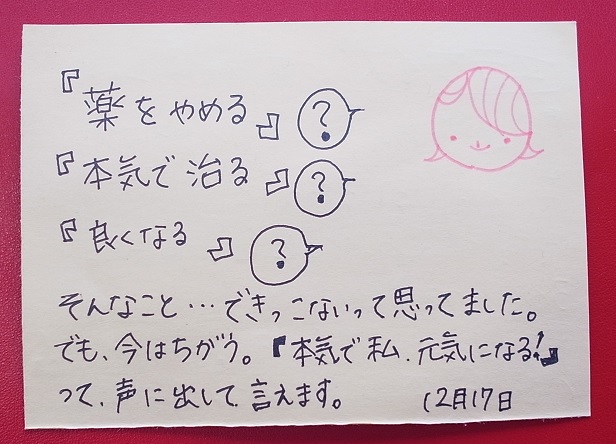 『薬をやめる』?
『本気で治る』?
『良くなる』?
そんなこと…できっこないって思ってました。
でも、今はちがう。『本気で私、元気になる!』
って、声に出して、言えます。 12月17日